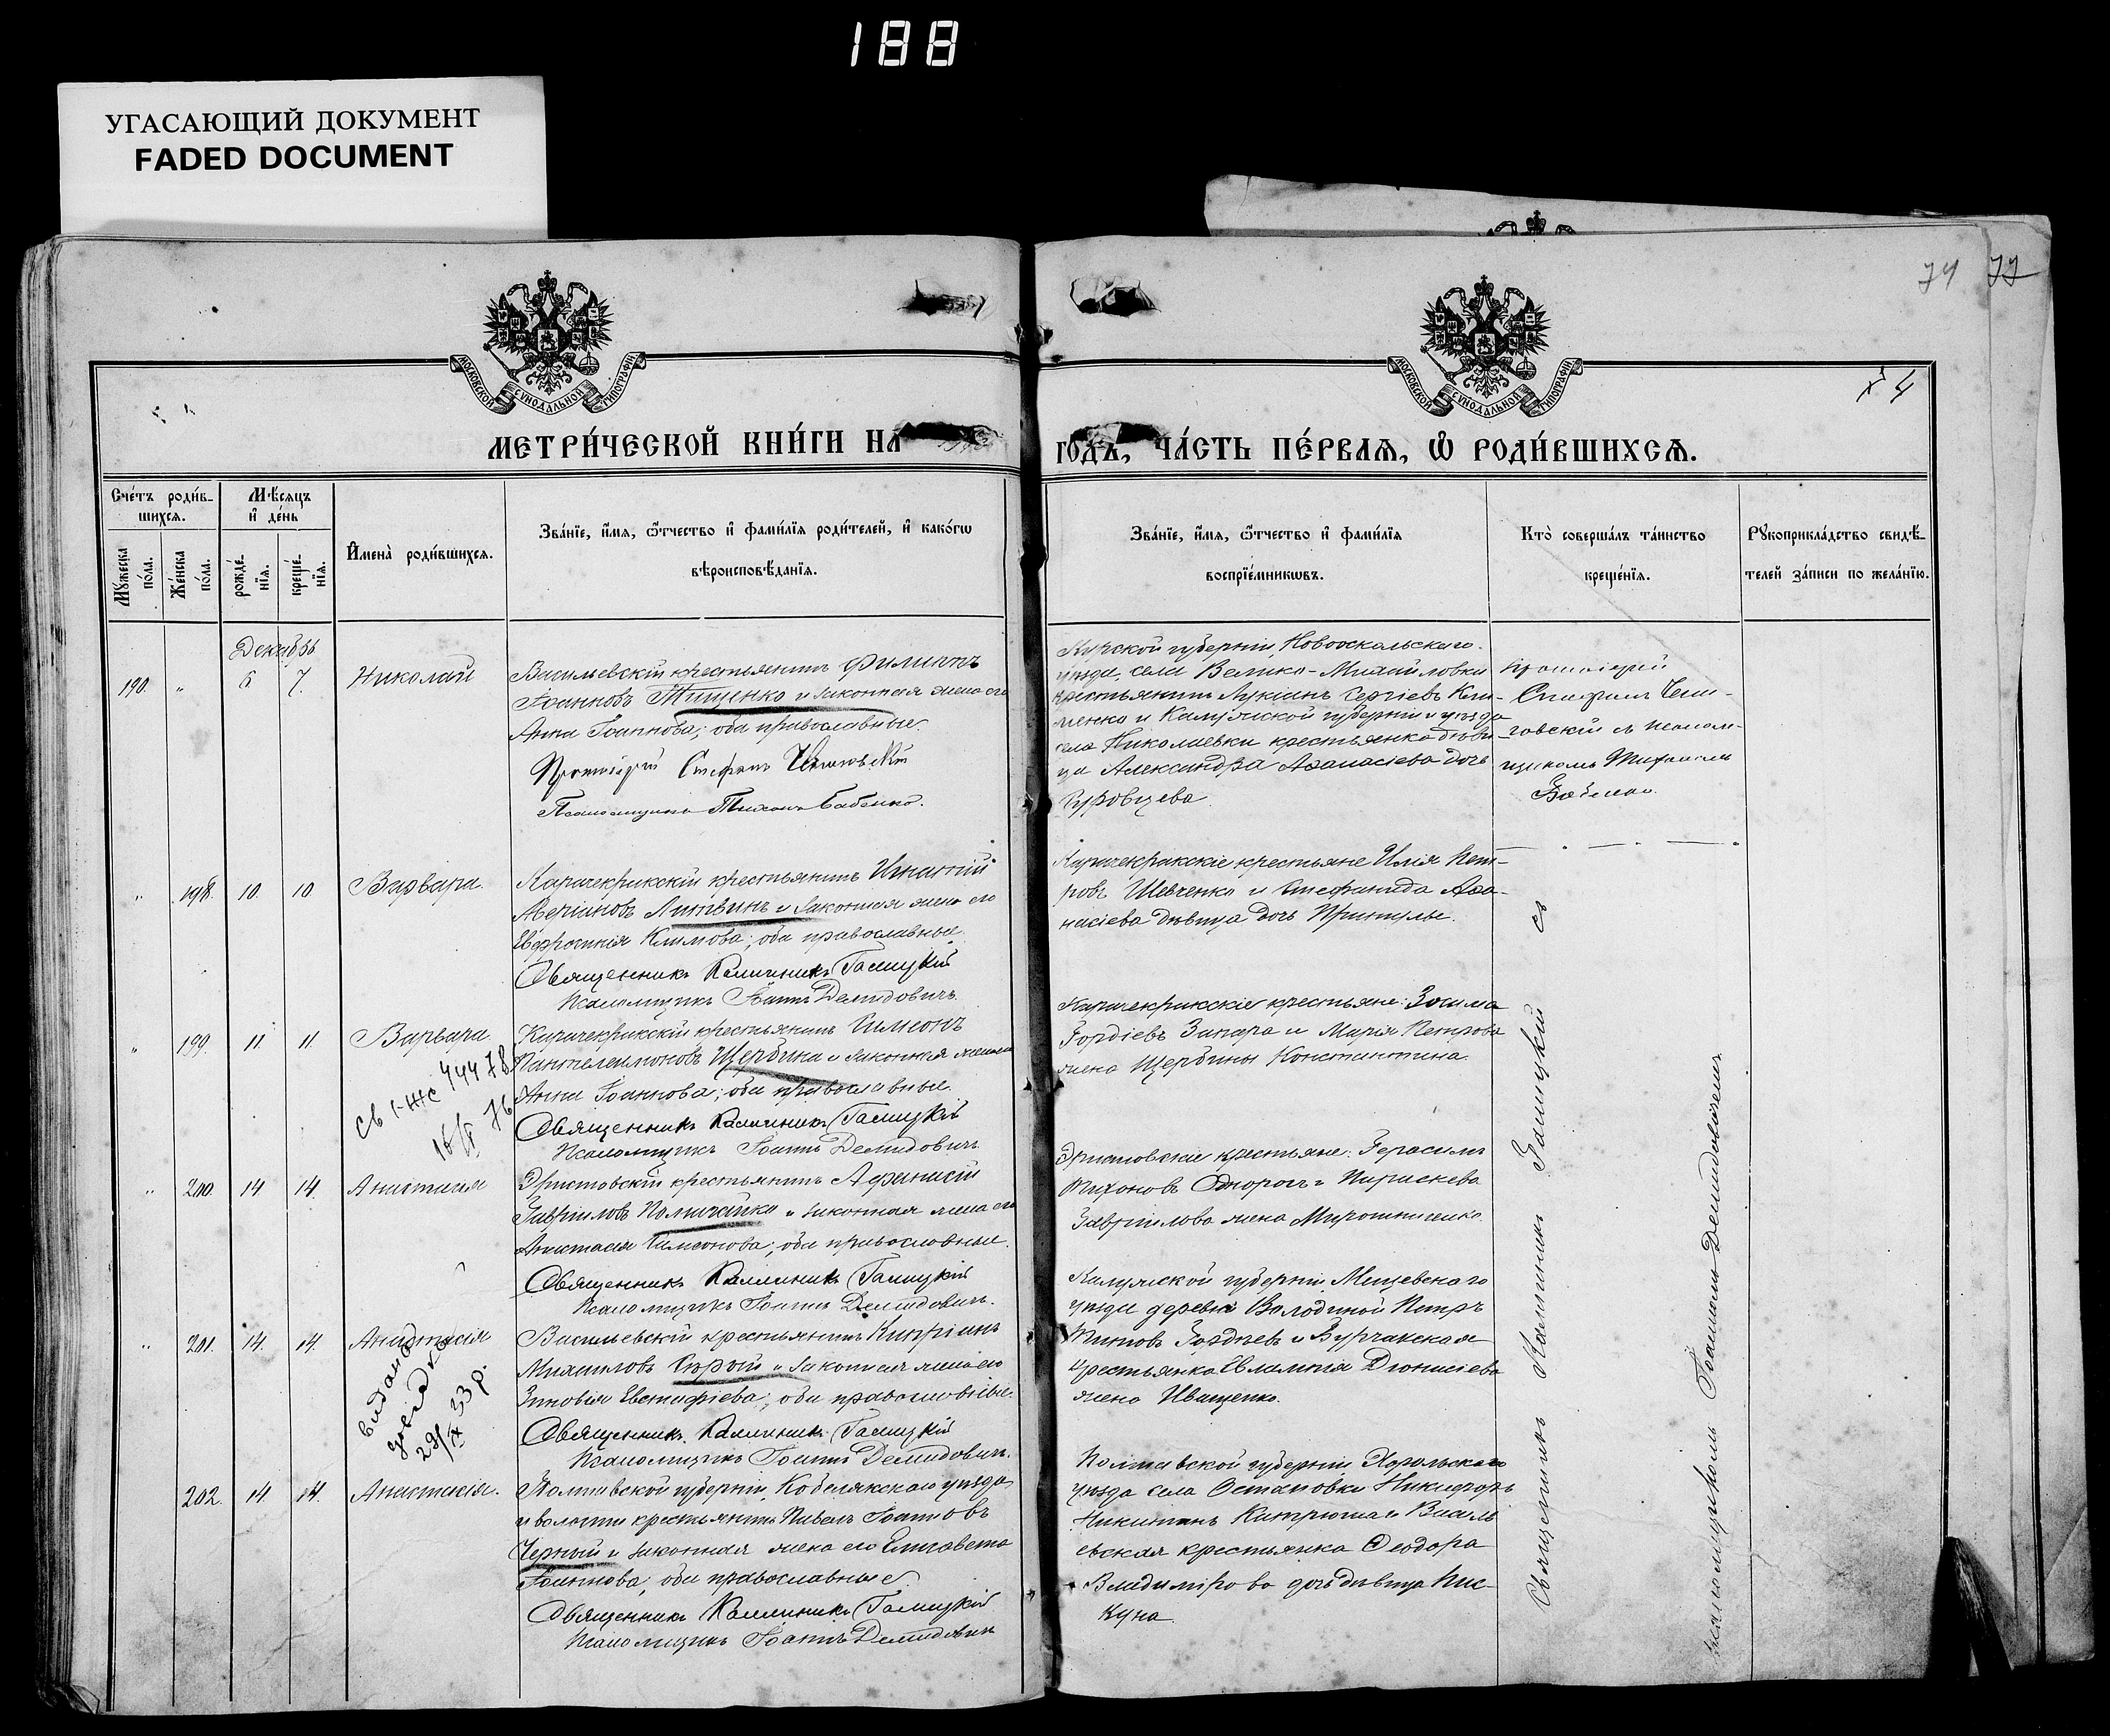 188
УГАСАЮЩИЙ ДОКУМЕНТ
FADED DOCUMENT
74 77
74
МОСКОВСКОЙ СѴНОДАЛЬНОЙ ТИПОГРАФІИ
МОСКОВСКОЙ СѴНОДАЛЬНОЙ ТИПОГРАФІИ
МЕТРИ́ЧЕСКОЙ КНИ́ГИ НА
ГОДЪ, ЧА́СТЬ ПЕ́РВАѦ, Ѡ҆ РОДИ́ВШИХСѦ.
Сче́тъ роди́в-
шихсѧ.
Мꙋ́жеска по́ла.
Же́нска по́ла.
Мѣ́сѧцъ
и҆ де́нь
рожде́-
нїѧ.
креще́-
нїѧ.
И҆мена̀ роди́вшихсѧ.
Зва́нїе, и҆́мѧ, ѻ҆́тчество и҆ фами́лїѧ роди́телей, и҆ како́гѡ
вѣроисповѣ́данїѧ.
Зва́нїе, и҆́мѧ, ѻ҆́тчество и҆ фами́лїѧ
воспрїе́мникѡвъ.
Кто̀ соверша́лъ та́инство
креще́нїѧ.
Рꙋкоприкла́дство свидѣ́-
телей за́писи по жела́нїю.
Декабрь
190. " 6 7. Николай
Васильевскій крестьянинъ Филиппъ
Іоанновъ Тищенко и законная жена его
Анна Іоаннова; оба православные.
Протоіерей Стефанъ
Псаломщикъ Тихонъ Бабенко.
Курской губерніи, Новооскольскаго
уѣзда, села Велико-Михайловки
крестьянинъ Лукіанъ Сергіевъ Кли-
менко и Калужской губерніи и уѣзда
села Николаевки крестьянка дѣви-
ца Александра Аѳанасіева дочь
Протоіерей
Стефанъ
товскій съ псалом-
щикомъ Тихономъ
Бабенко.
" 198. 10. 10 Варвара.
Карачекракскій крестьянинъ Игнатій
Литвинъ и законная жена его
Евфросинія Климова; оба православные.
Священникъ Каллиникъ Галицкій
Псаломщикъ Іоаннъ Демидовичъ.
Карачекракскіе крестьяне Илія Пет-
ровъ Шевченко и Стефанида Аѳа-
насіева дѣвица дочь Притулы.
" 199. 11. 11. Варвара
44478
16/ 76
Карачекракскій крестьянинъ Симеонъ
Пантелеимоновъ Щербина и законная жена его
Анна Іоаннова; оба православные.
Священникъ Каллиникъ Галицкій
Псаломщикъ Іоаннъ Демидовичъ.
Карачекракскіе крестьяне: Зосима
Гордіевъ Запара и Марія Петрова
жена Щербины Константина.
" 200. 14 14. Анастасія
Эристовскій крестьянинъ Аѳанасій
Гавріиловъ и законная жена его
Анастасія Симеонова; оба православные.
Священникъ Каллиникъ Галицкій
Псаломщикъ Іоаннъ Демидовичъ.
Эристовскіе крестьяне: Герасимъ
Тихоновъ Однорогъ и Параскева
Гавріилова жена Мирошниченко.
" 201. 14. 14. Анастасія
видана
довідка
29/IX 33 р.
Васильевскій крестьянинъ Кипріанъ
Михаиловъ Сѣрый и законная жена его
Зиновія Евстафіева; оба православные.
Священникъ Каллиникъ Галицкій
Псаломщикъ Іоаннъ Демидовичъ.
Калужской губерніи, Мещевского
уѣзда деревни Володиной Петръ
Титовъ Гордѣевъ и Бурчакская
крестьянка Евлампія Діонисіева
жена Иващенко.
202. 14. 14. Анастасія.
Полтавской губерніи, Кобелякскаго уѣзда
и волости крестьянинъ Павелъ Іоанновъ
Черный и законная жена его Елисавета
Іоаннова; оба православные.
Священникъ Каллиникъ Галицкій
Псаломщикъ Іоаннъ Демидовичъ
Полтавской губерніи Хорольскаго
уѣзда села Остаповки Никифоръ
Никитинъ и Василь-
евская крестьянка Ѳеодора
Владимірова дочь дѣвица Пис-
куна.
Священникъ Каллиникъ Галицкій съ
псаломщикомъ Іоанномъ Демидовичемъ